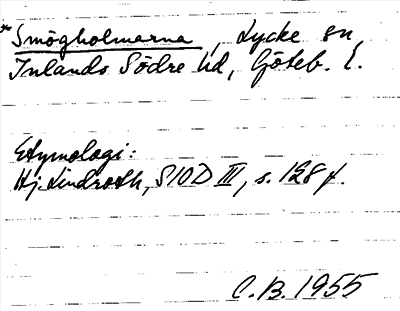 *Smögholmarna, Lycke sn
Inlands Södre hd, Göteb. l.
Etymologi:
Hj. Lindroth, SIOD III, s. 128 f.
C.B. 1955